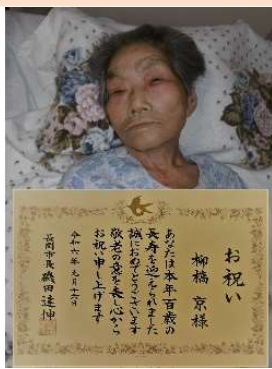 お祝い
柳橋 京様
あなたは本年百歳の
長寿を迎えられました
誠におめでとうございます
敬老の意を表し心から
お祝い申し上げます
令和六年 元月十六日
長岡市長 磯田達伸